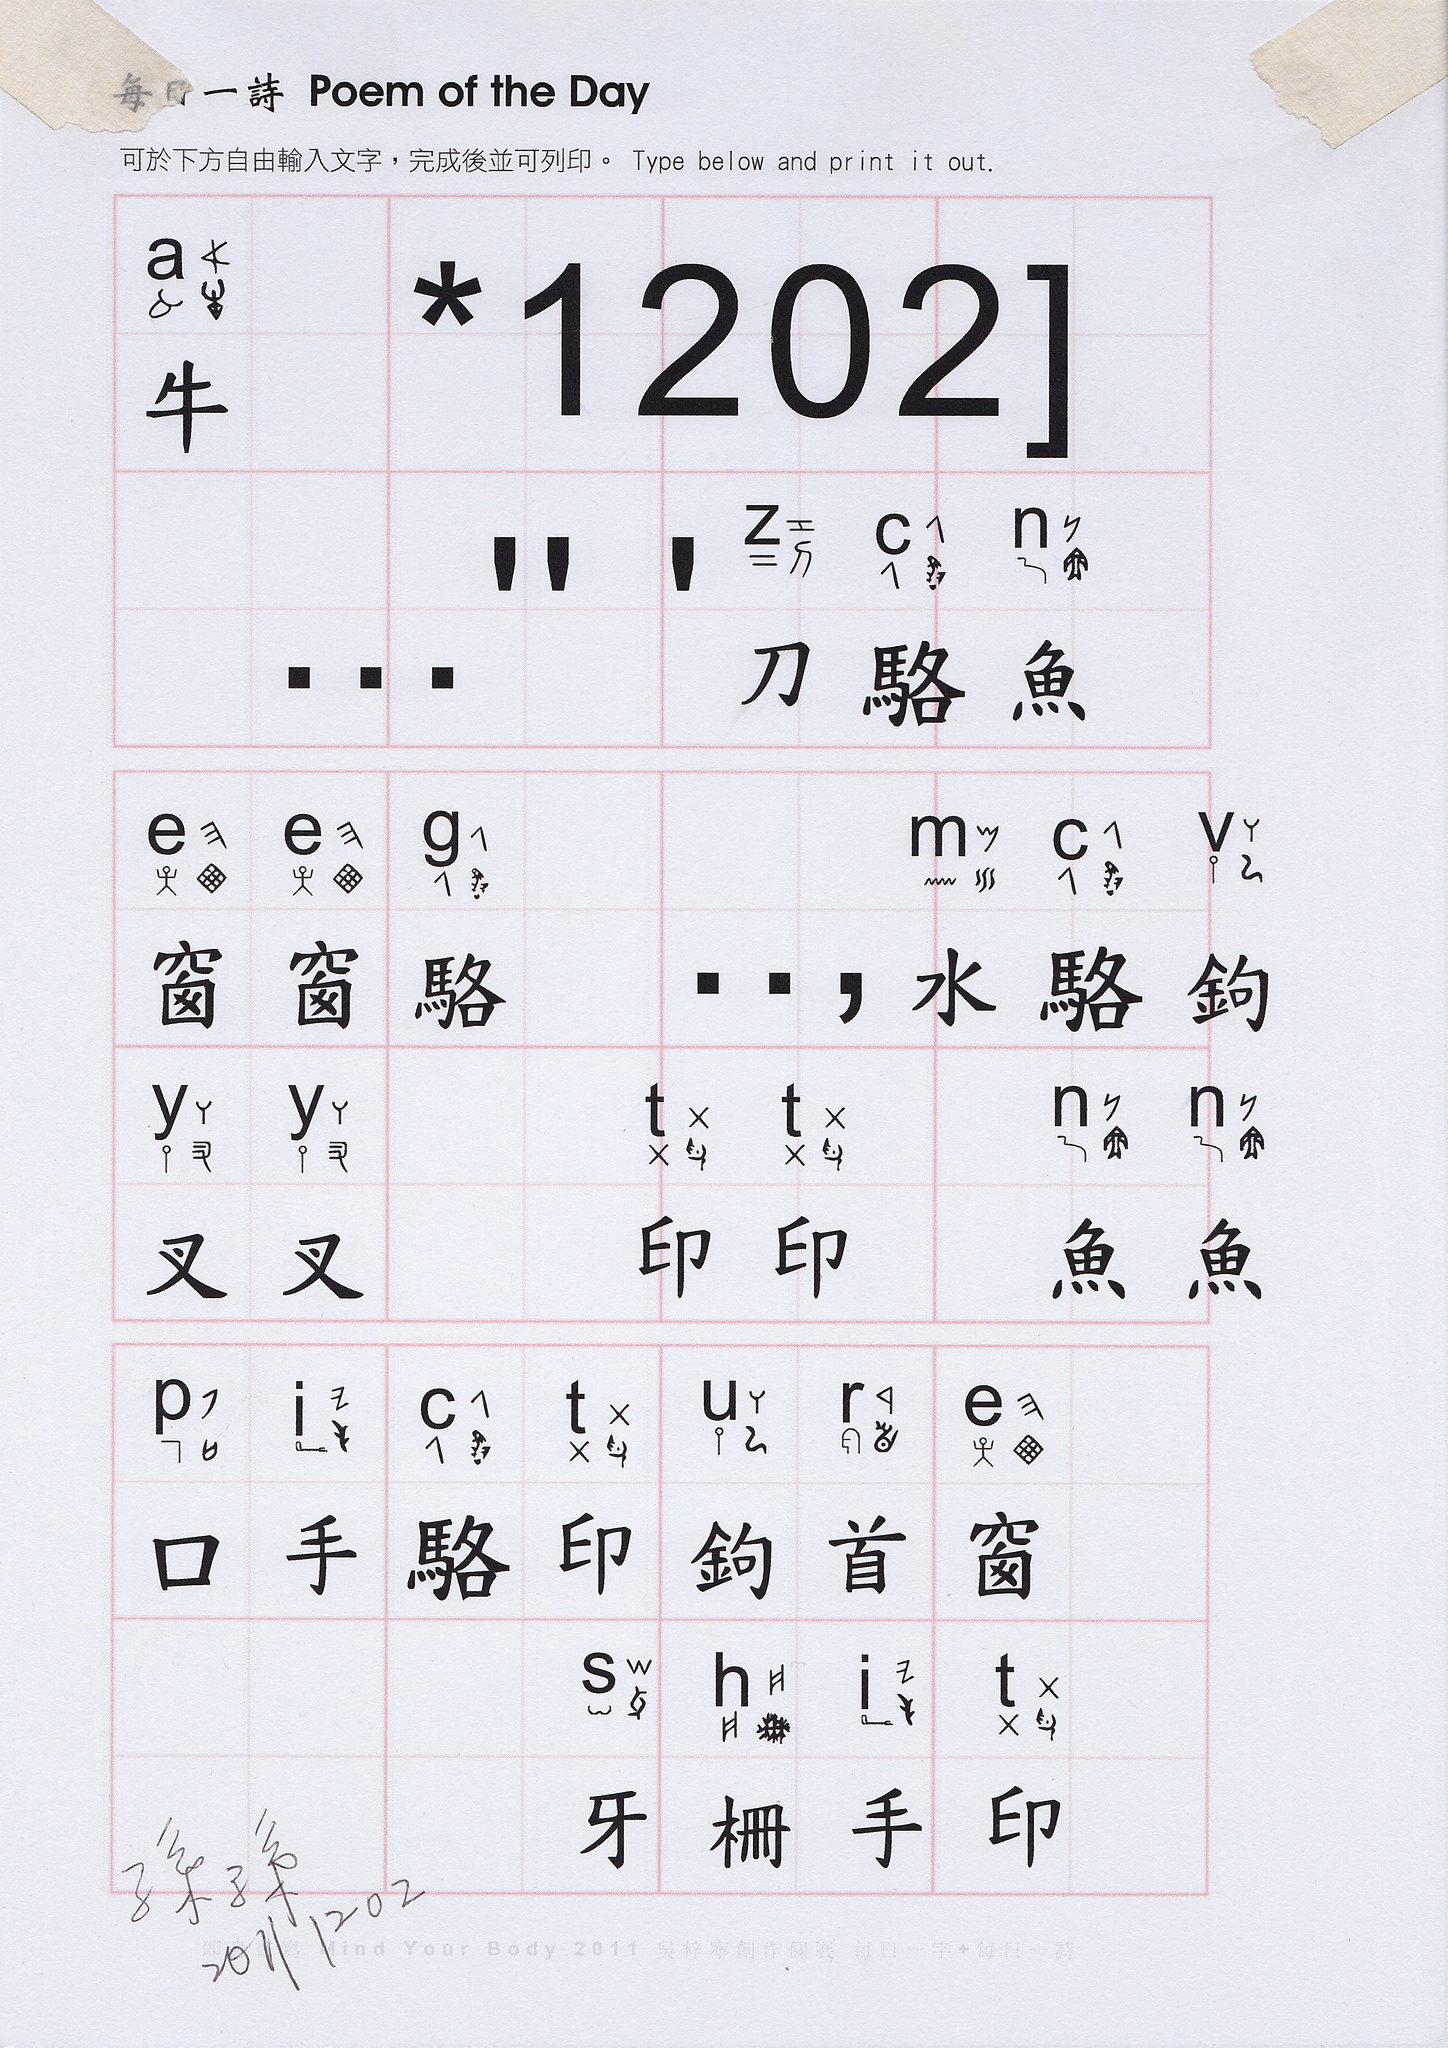 每日一詩 Poem of the Day
可於下方自由輸入文字，完成後並可列印。 Type below and print it out.
a *1202]
牛
" ' z c n
... 刀 駱 魚
e e g m c v
窗 窗 駱 .., 水 駱 鉤
y y t t n n
叉 叉 印 印 魚 魚
p i c t u r e
口 手 駱 印 鉤 首 窗
s h i t
牙 柵 手 印
孫孫
20111202
Mind Your Body 2011 吳梓寧創作個展 每日一字+每日一詩